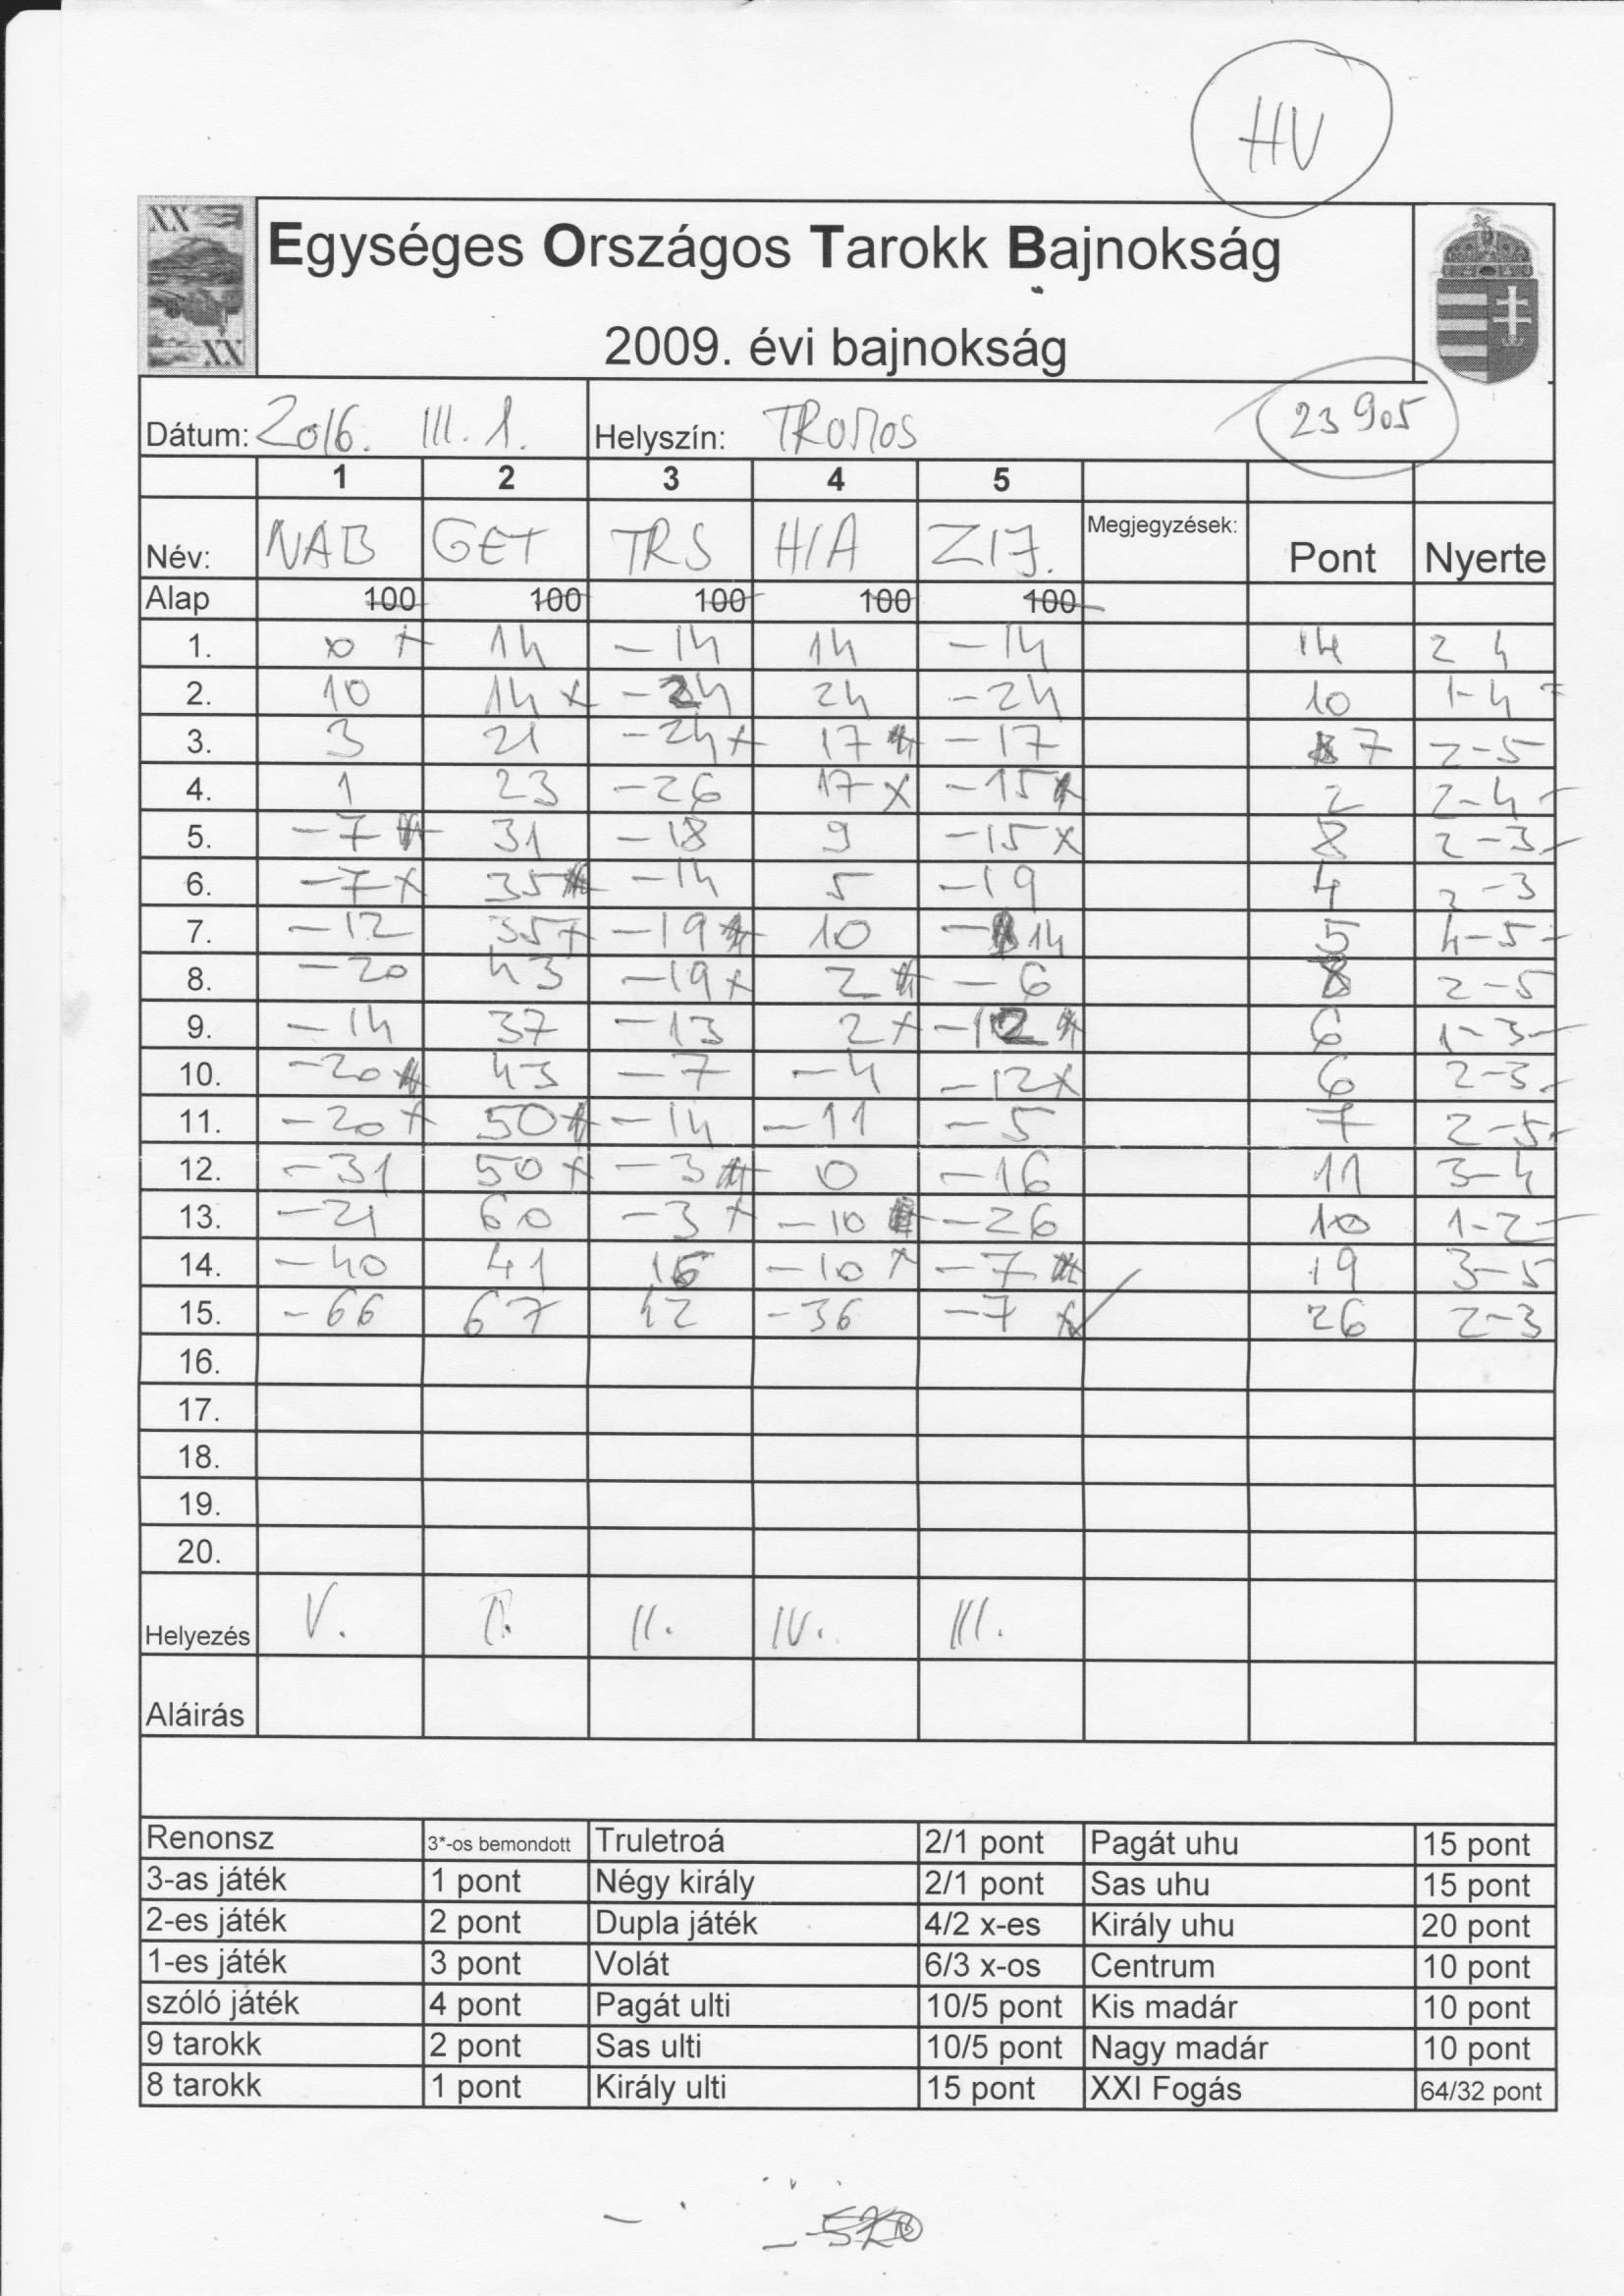 HV
XX
XX
Egységes Országos Tarokk Bajnokság
2009. évi bajnokság
Dátum: 2016. III. 1. Helyszín: TROMOS 23905
1 2 3 4 5
Név: NAB GET TRS HIA ZIJ. Megjegyzések: Pont Nyerte
Alap 100 100 100 100 100
1. 0 x 14 -14 14 -14 14 2 4
2. 10 14 x -24 24 -24 10 1-4
3. 3 21 -24 x 17 -17 7 2-5
4. 1 23 -26 17 x -15 2 2-4
5. -7 31 -18 9 -15 x 8 2-3
6. -7 x 35 -14 5 -19 4 2-3
7. -12 35 x -19 10 -14 5 4-5
8. -20 43 -19 x 2 -6 8 2-5
9. -14 37 -13 2 x -12 6 1-3
10. -20 43 -7 -4 -12 x 6 2-3
11. -20 x 50 -14 -11 -5 7 2-5
12. -31 50 x -3 0 -16 11 3-4
13. -21 60 -3 x -10 -26 10 1-2
14. -40 41 16 -10 x -7 19 3-5
15. -66 67 42 -36 -7 x 26 2-3
16.
17.
18.
19.
20.
Helyezés V. I. II. IV. III.
Aláirás
Renonsz 3*-os bemondott Truletroá 2/1 pont Pagát uhu 15 pont
3-as játék 1 pont Négy király 2/1 pont Sas uhu 15 pont
2-es játék 2 pont Dupla játék 4/2 x-es Király uhu 20 pont
1-es játék 3 pont Volát 6/3 x-os Centrum 10 pont
szóló játék 4 pont Pagát ulti 10/5 pont Kis madár 10 pont
9 tarokk 2 pont Sas ulti 10/5 pont Nagy madár 10 pont
8 tarokk 1 pont Király ulti 15 pont XXI Fogás 64/32 pont